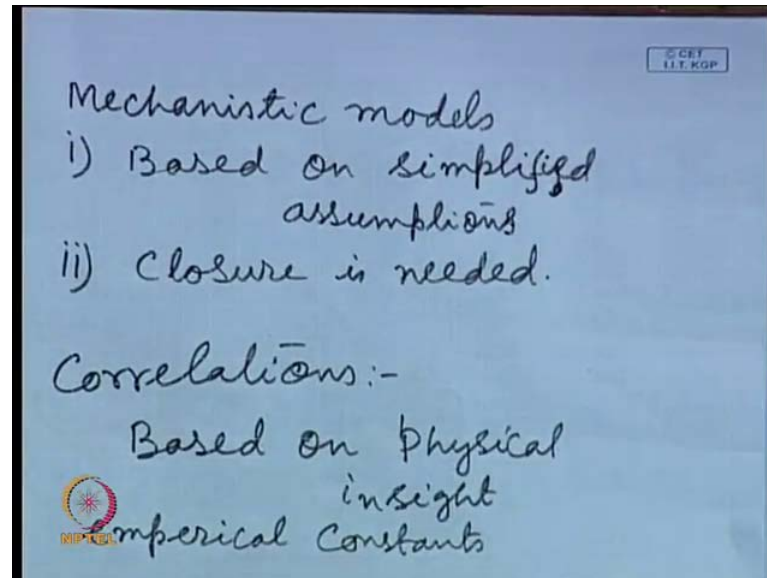 © CET
I.I.T. KGP
Mechanistic models
i) Based on simplified
assumptions
ii) Closure is needed.
Correlations:-
Based on Physical
insight
Emperical Constants
NPTEL